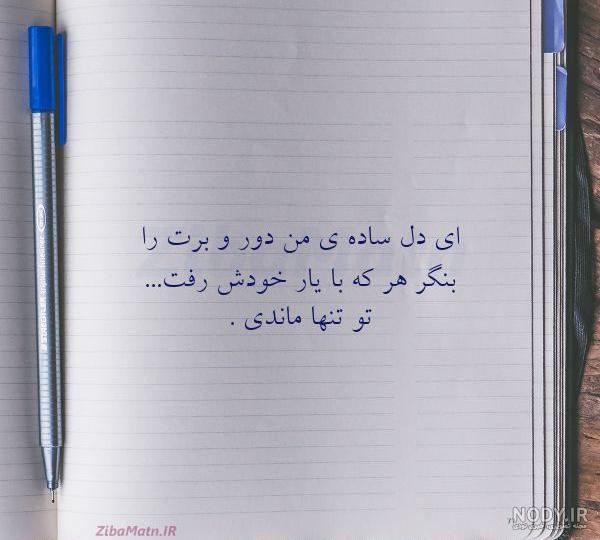 ای دل ساده ی من دور و برت را
بنگر هر که با یار خودش رفت...
تو تنها ماندی .
ZibaMatn.IR
NODY.IR